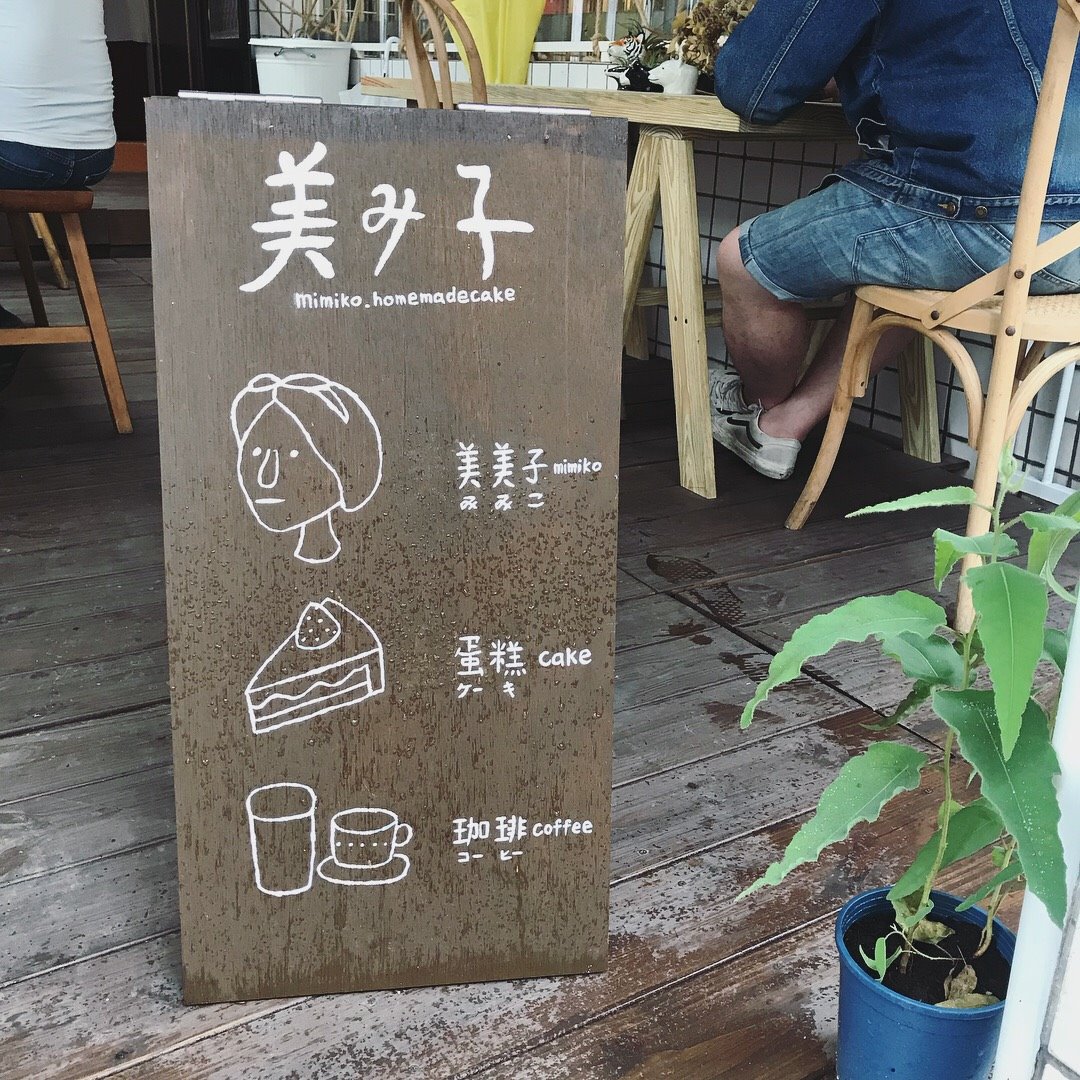 美み子
mimiko.homemadecake
美美子 mimiko
みみこ
蛋糕 cake
ケーキ
珈琲 coffee
コーヒー